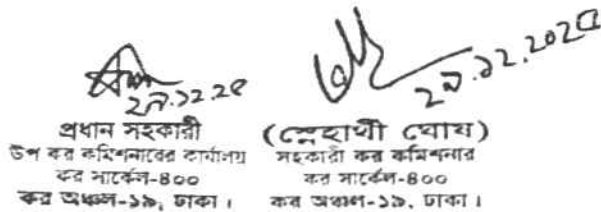 ২৯.১২.২৫ ২৯.১২.২০২৫
প্রধান সহকারী
উপ কর কমিশনারের কার্যালয়
কর সার্কেল-৪০০
কর অঞ্চল-১৯, ঢাকা।
(স্নেহাথী ঘোষ)
সহকারী কর কমিশনার
কর সার্কেল-৪০০
কর অঞ্চল-১৯, ঢাকা।